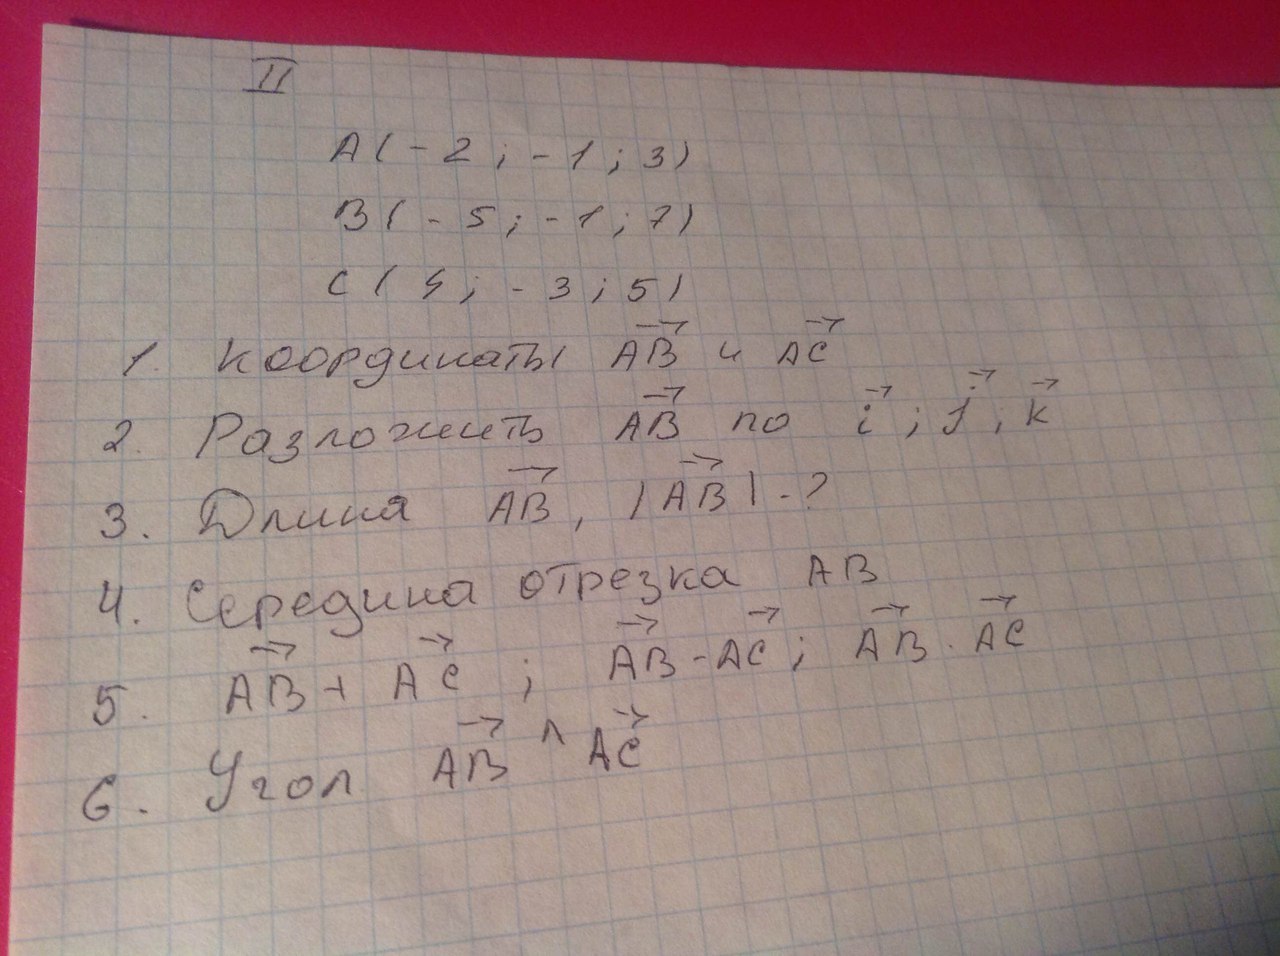 II
A(-2; -1; 3)
B(-5; -1; 7)
C(4; -3; 5)
1. Координаты \overrightarrow{AB} и \overrightarrow{AC}
2. Разложить \overrightarrow{AB} по \vec{i}; \vec{j}, \vec{k}
3. Длина \overrightarrow{AB}, |\overrightarrow{AB}| - ?
4. Середина отрезка AB
5. \overrightarrow{AB} + \overrightarrow{AC}; \overrightarrow{AB} - \overrightarrow{AC}; \overrightarrow{AB} · \overrightarrow{AC}
6. Угол \overrightarrow{AB} ^ \overrightarrow{AC}